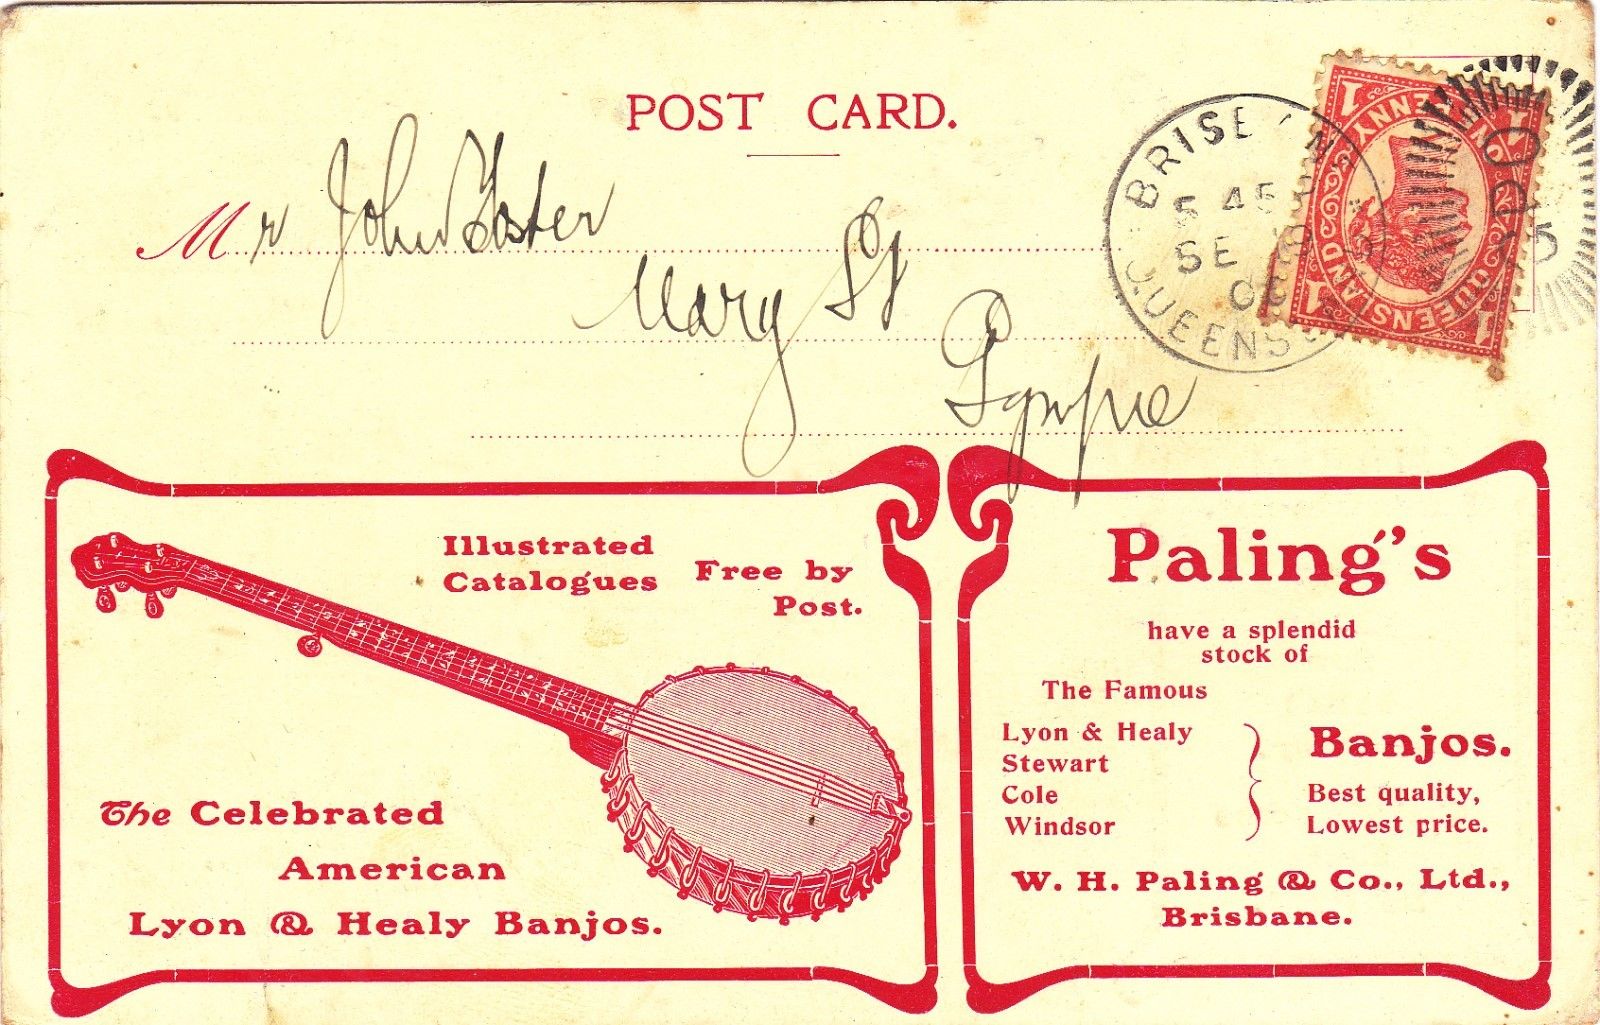 POST CARD.
Mr John Foster
Mary St
Gympie
BRISBANE
5 45
SE
QUEENSL
ONE PENNY
QUEENSLAND
1
1
1
1
Illustrated
Catalogues
Free by
Post.
The Celebrated
American
Lyon & Healy Banjos.
Paling's
have a splendid
stock of
The Famous
Lyon & Healy
Stewart
Cole
Windsor
Banjos.
Best quality,
Lowest price.
W. H. Paling & Co., Ltd.,
Brisbane.